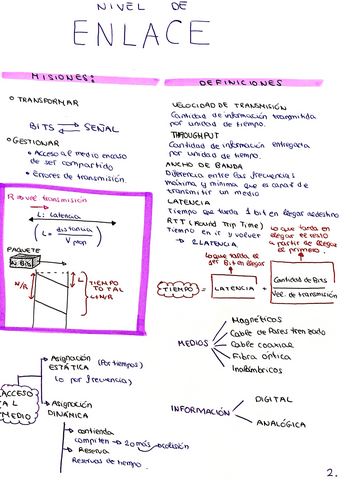 NIVEL DE
ENLACE
MISIONES:
○ TRANSFORMAR
BITS ⇄ SEÑAL
○ GESTIONAR
• Acceso al medio en caso
de ser compartido
• Errores de transmisión
R = vel. transmisión
L: Latencia
(L = distancia / V prop)
PAQUETE
N Bits
N/R
L
TIEMPO
TOTAL
L+N/R
ACCESO
AL
MEDIO
Asignación
ESTÁTICA (Por tiempos)
(o por frecuencia)
Asignación
DINÁMICA
→ contienda
compiten → 2 o más → colisión
→ Reserva
Reservas de tiempo.
DEFINICIONES
VELOCIDAD DE TRANSMISIÓN
Cantidad de información transmitida
por unidad de tiempo.
THROUGHPUT
Cantidad de información entregada
por unidad de tiempo.
ANCHO DE BANDA
Diferencia entre las frecuencias
máxima y mínima que es capaz de
transmitir un medio
LATENCIA
Tiempo que tarda 1 bit en llegar a destino
RTT (Round Trip Time)
Tiempo en ir y volver
→ 2 LATENCIA
Lo que tarda en
llegar el resto
a partir de llegar
el primero.
Lo que tarda el
1er Bit en llegar
TIEMPO = LATENCIA + Cantidad de Bits
Vel. de transmisión
MEDIOS
Magnéticos
Cable de Pares trenzado
Cable coaxial
Fibra óptica
Inalámbricos
INFORMACIÓN
DIGITAL
ANALÓGICA
2.